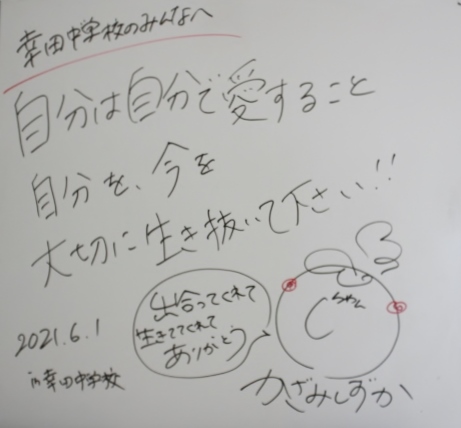 幸田中学校のみんなへ
自分は自分で愛すること
自分を、今を
大切に生き抜いて下さい!!
出合ってくれて
生きててくれて
ありがとう
しちゃん
2021.6.1
in 幸田中学校
かざみしずか